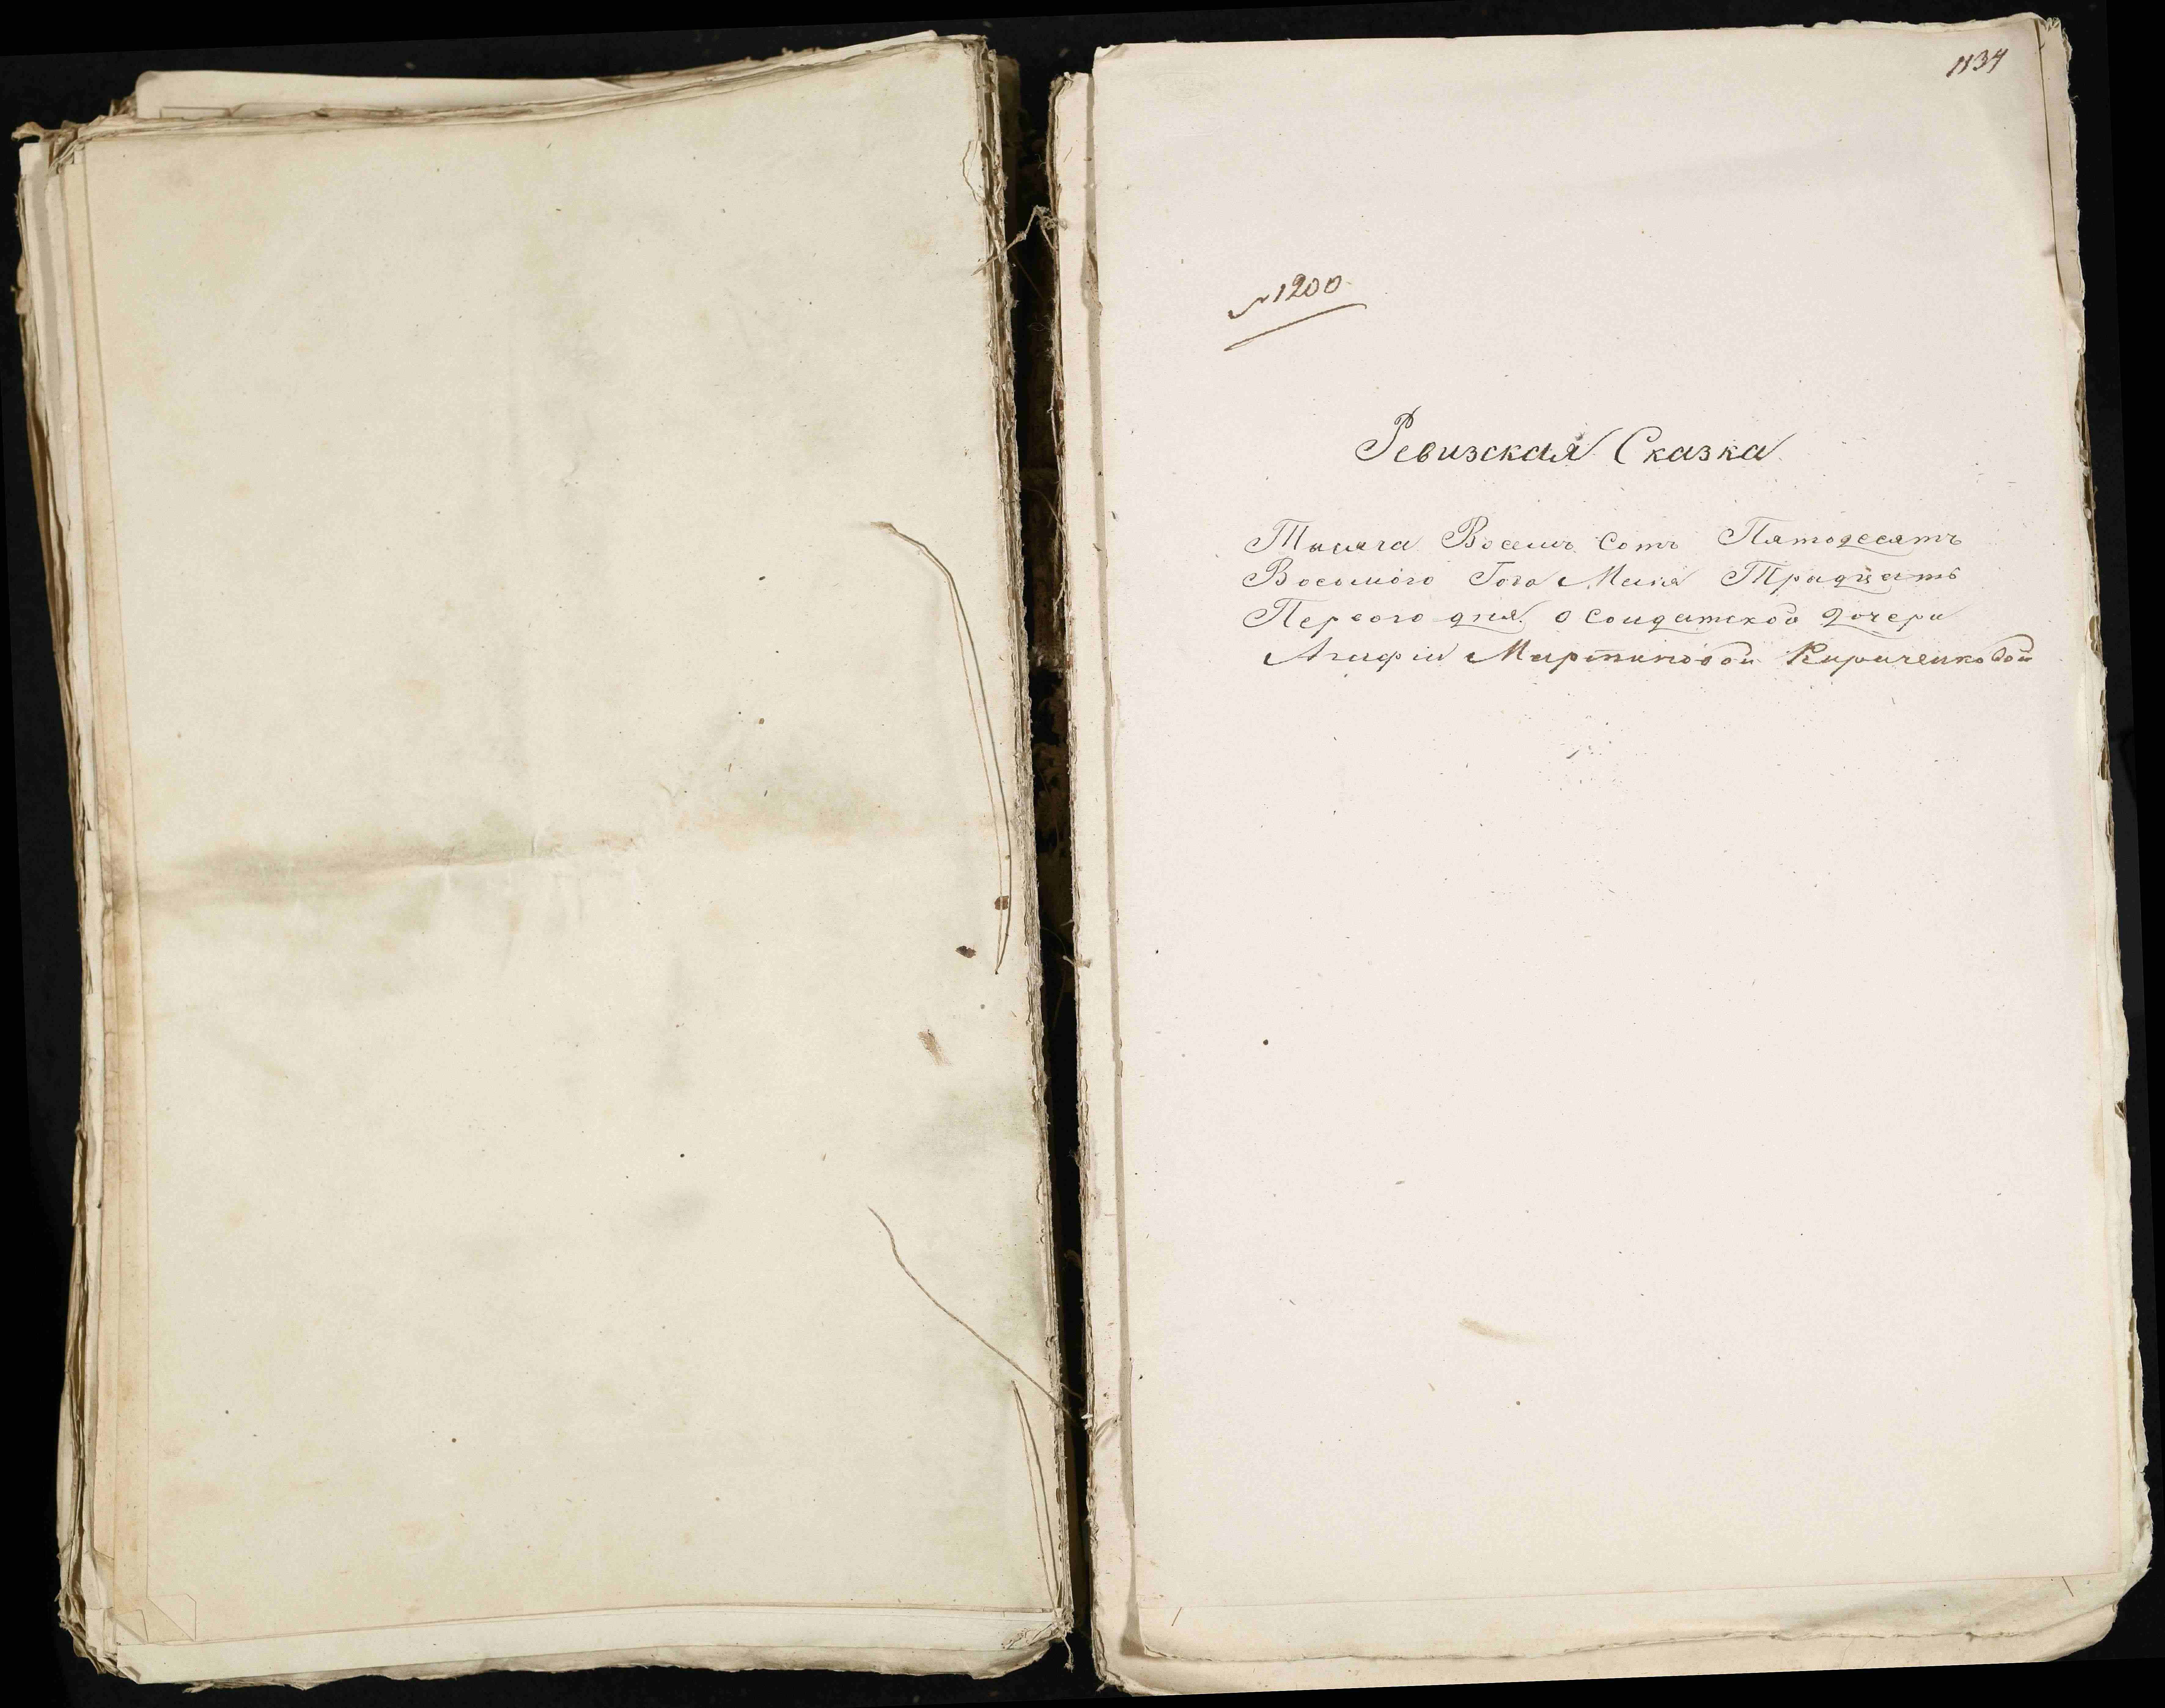 1134
№ 1200
Ревизская Сказка
Тысяча Восемь Сотъ Пятодесятъ
Восомого Гога Мыия Традцать
Первого дня о Солдатской дочери
Агафіи Мартиновой Кириченковой